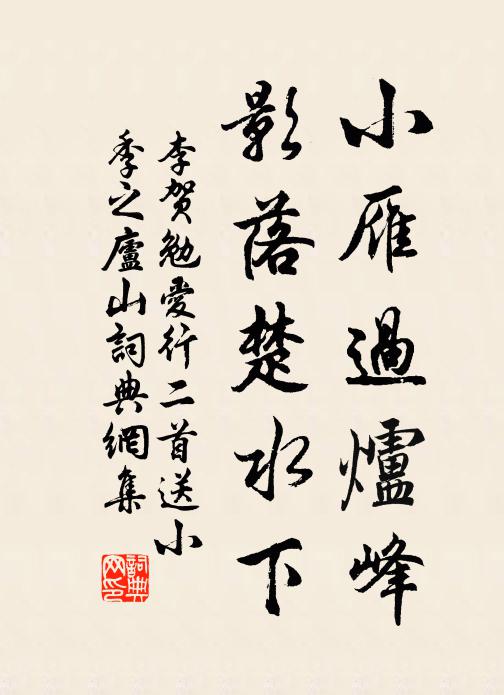 小雁過爐峰
影落楚水下
李賀勉愛行二首送小
季之廬山詞典網集
詞典网印